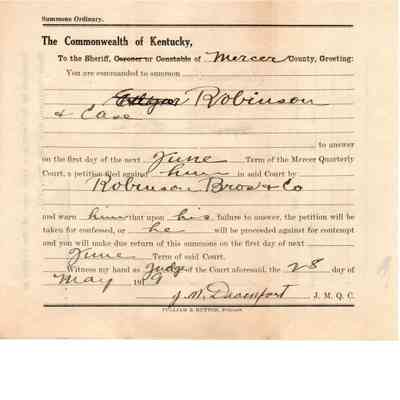 Summons Ordinary.
The Commonwealth of Kentucky,
To the Sheriff, Coroner or Constable of Mercer County, Greeting:
You are commanded to summon
Robinson
& Case
to answer
on the first day of the next June Term of the Mercer Quarterly
Court, a petition filed against him in said Court by
Robinson Bros & Co
and warn him that upon his failure to answer, the petition will be
taken for confessed, or he will be proceeded against for contempt
and you will make due return of this summons on the first day of next
June Term of said Court.
Witness my hand as Judge of the Court aforesaid, the 28 day of
May 191
J. W. Davenport J. M. Q. C.
PULLIAM & HUTTON, Printers